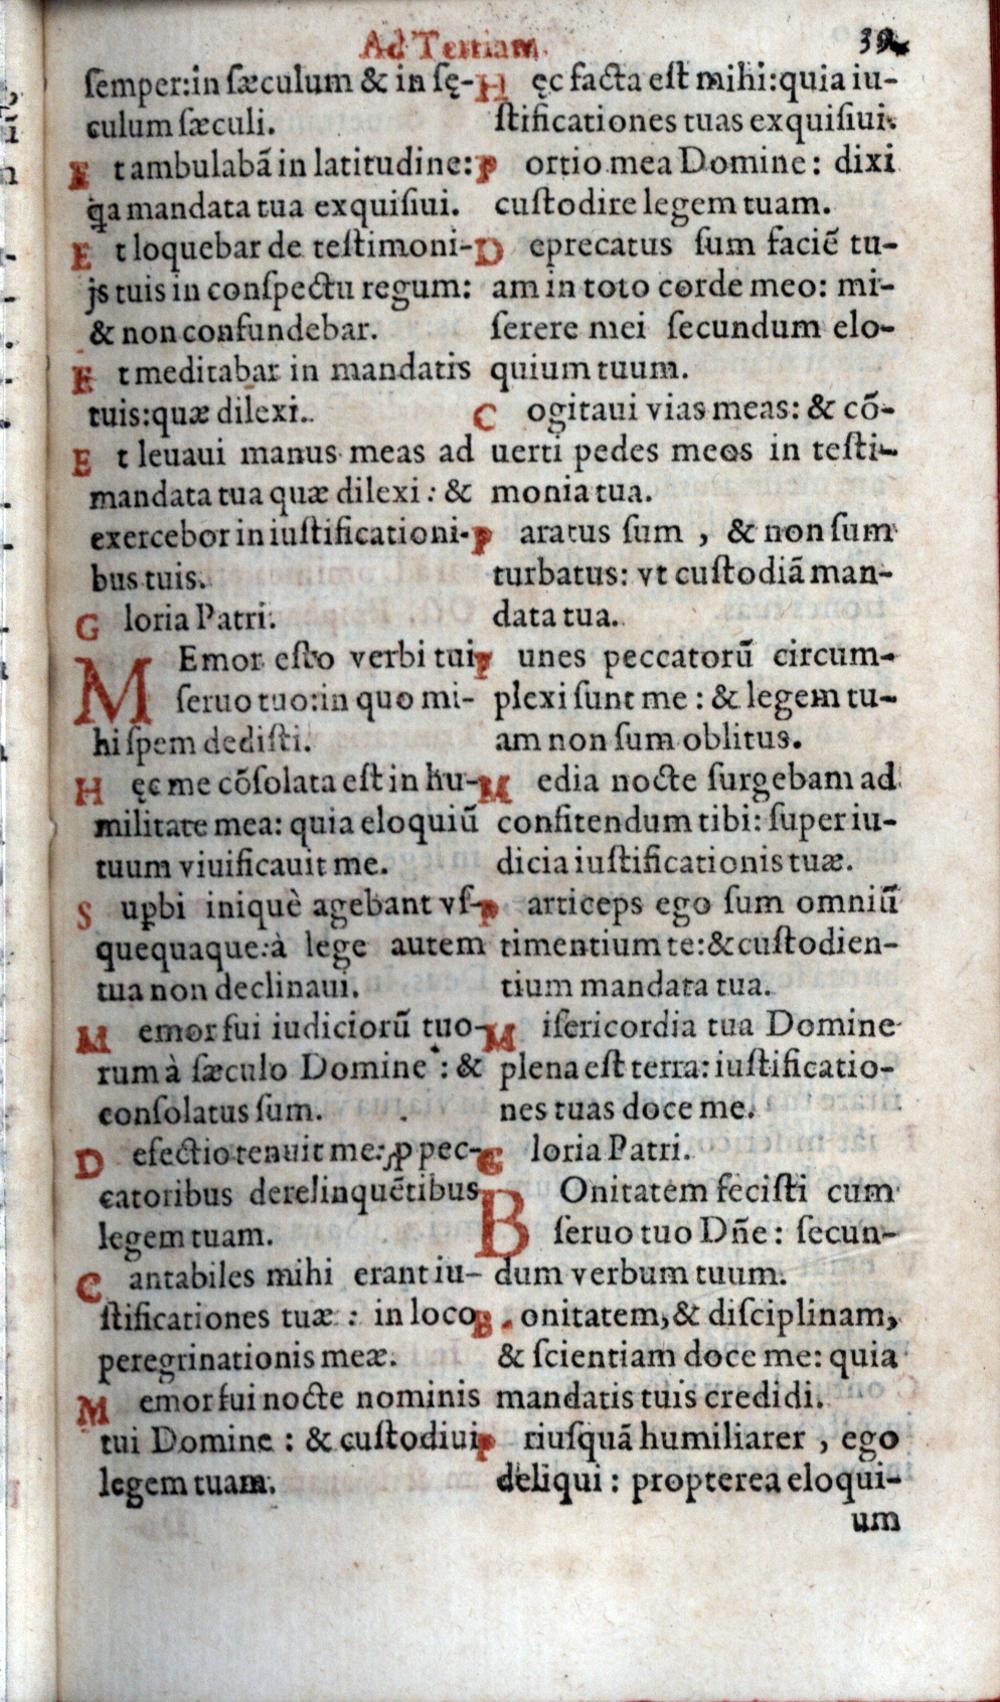 Ad Tertiam.
39
semper:in sæculum & in sę-
culum sæculi.
E t ambulabā in latitudine:
q̄a mandata tua exquisiui.
E t loquebar de testimoni-
js tuis in conspectu regum:
& non confundebar.
E t meditabar in mandatis
tuis:quæ dilexi.
E t leuaui manus meas ad
mandata tua quæ dilexi : &
exercebor in iustificationi-
bus tuis.
G loria Patri.
MEmor esto verbi tui
seruo tuo:in quo mi-
hi spem dedisti.
H ęc me cōsolata est in hu-
militate mea: quia eloquiū
tuum viuificauit me.
S uꝑbi iniquè agebant vs-
quequaque:à lege autem
tua non declinaui.
M emor fui iudiciorū tuo-
rum à sæculo Domine : &
consolatus sum.
D efectio tenuit me: ꝓ pec-
catoribus derelinquētibus
legem tuam.
C antabiles mihi erant iu-
stificationes tuæ : in loco
peregrinationis meæ.
M emor fui nocte nominis
tui Domine : & custodiui
legem tuam.
H ęc facta est mihi:quia iu-
stificationes tuas exquisiui.
P ortio mea Domine: dixi
custodire legem tuam.
D eprecatus sum faciē tu-
am in toto corde meo: mi-
serere mei secundum elo-
quium tuum.
C ogitaui vias meas: & cō-
uerti pedes meos in testi-
monia tua.
P aratus sum , & non sum
turbatus: vt custodiā man-
data tua.
F unes peccatorū circum-
plexi sunt me : & legem tu-
am non sum oblitus.
M edia nocte surgebam ad
confitendum tibi: super iu-
dicia iustificationis tuæ.
P articeps ego sum omniū
timentium te:& custodien-
tium mandata tua.
M isericordia tua Domine
plena est terra: iustificatio-
nes tuas doce me.
G loria Patri.
BOnitatem fecisti cum
seruo tuo Dñe: secun-
dum verbum tuum.
B onitatem, & disciplinam,
& scientiam doce me: quia
mandatis tuis credidi.
P riusquā humiliarer , ego
deliqui : propterea eloqui-
um